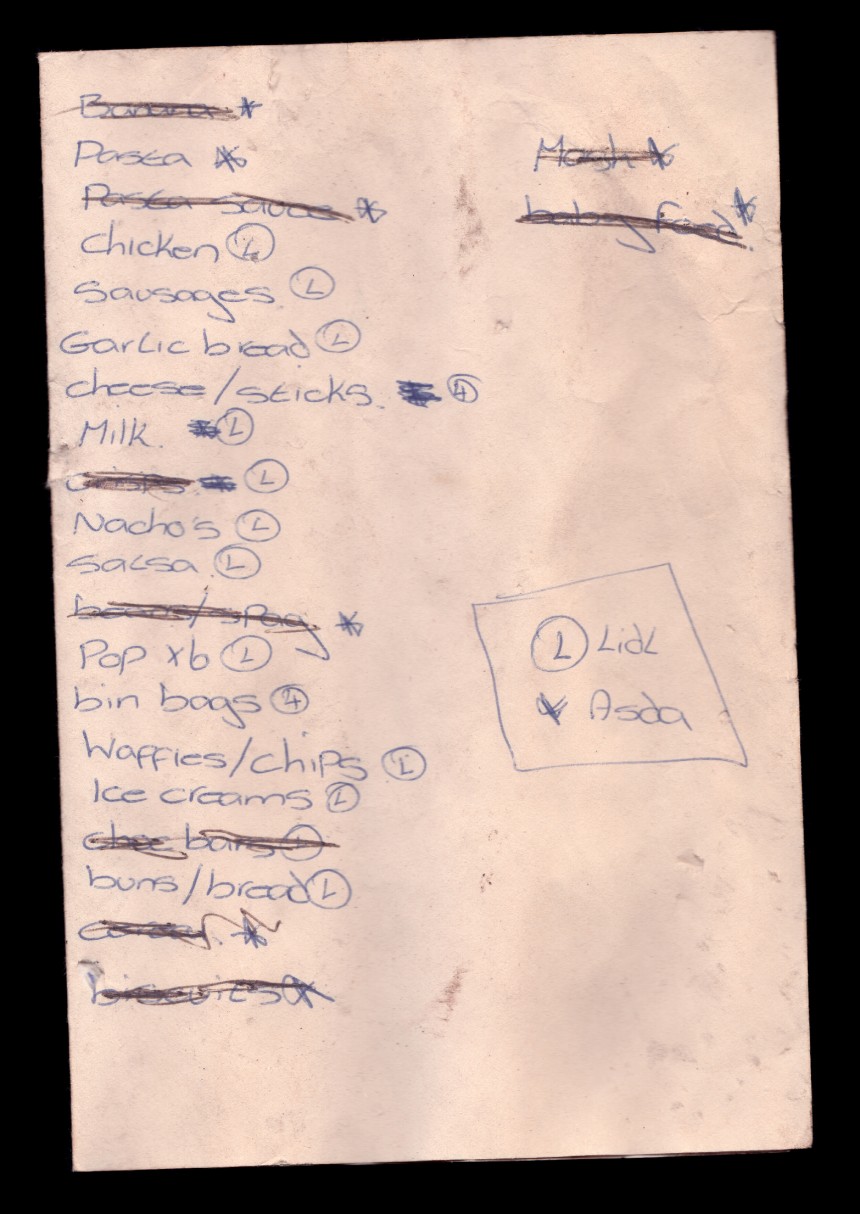 Banana *
Pasta *
Pasta sauce *
chicken Ⓛ
Sausages Ⓛ
Garlic bread Ⓛ
cheese/sticks. ④
Milk. Ⓛ
Ⓛ
Nacho's Ⓛ
salsa Ⓛ
beans/spag *
Pop x6 Ⓛ
bin bags ④
Waffles/chips Ⓛ
Ice creams Ⓛ
choc bars Ⓛ
buns/bread Ⓛ
*
biscuits *
Mash *
baby food *
Ⓛ Lidl
* Asda